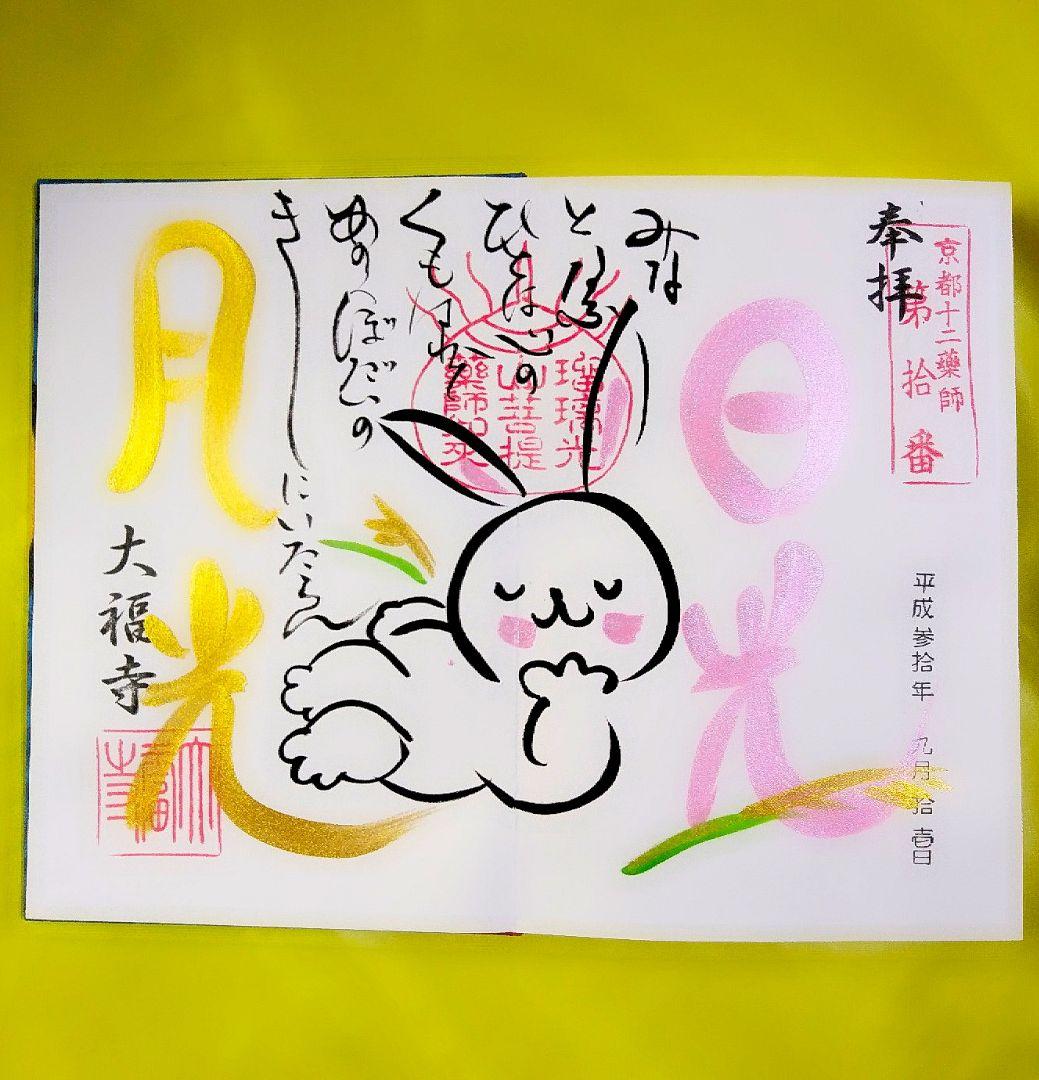 京都十二藥師
第拾番
奉拝
平成参拾年 九月拾壱日
日光
みな
と
ひとは心の
くもはれ
のぼだいの
きしにいたらん
瑠璃光
山菩提
藥師如来
月光
大福寺
大福寺